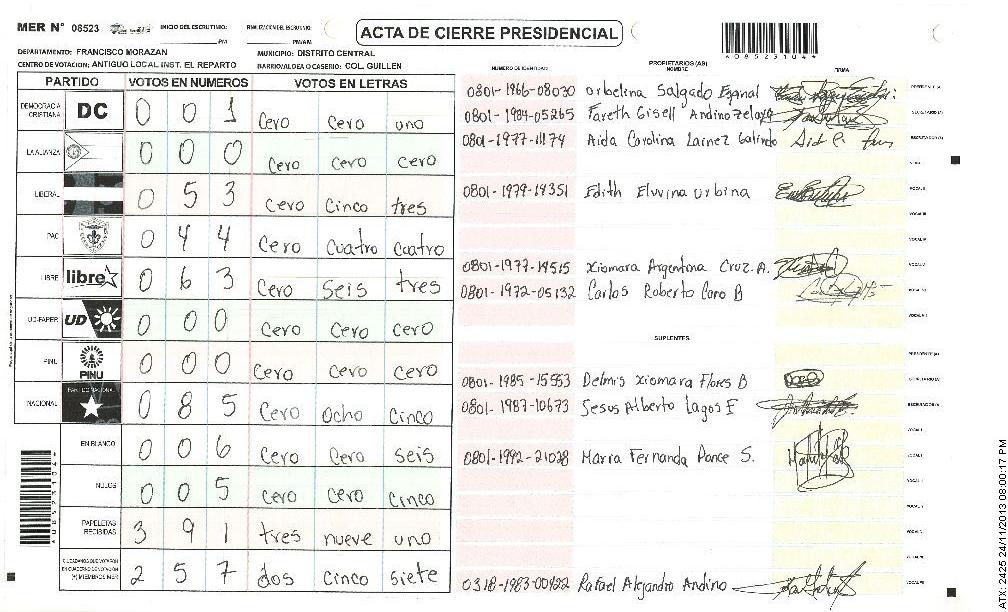 MER N° 08523 INICIO DEL ESCRUTINIO: PM FINALIZACION DEL ESCRUTINIO: PM/AM
ACTA DE CIERRE PRESIDENCIAL
4 0 8 5 2 3 1 0 4
DEPARTAMENTO: FRANCISCO MORAZAN MUNICIPIO: DISTRITO CENTRAL
CENTRO DE VOTACION: ANTIGUO LOCAL INST. EL REPARTO BARRIO/ALDEA O CASERIO: COL. GUILLEN
PARTIDO VOTOS EN NUMEROS VOTOS EN LETRAS
DEMOCRACIA CRISTIANA DC 0 0 1 Cero Cero uno
LA ALIANZA 0 0 0 Cero Cero cero
LIBERAL 0 5 3 Cero Cinco tres
PAC 0 4 4 Cero Cuatro cuatro
LIBRE libre 0 6 3 Cero Seis tres
UD-FAPER UD 0 0 0 Cero Cero Cero
PINU PINU 0 0 0 Cero Cero cero
NACIONAL PARTIDO NACIONAL 0 8 5 Cero Ocho Cinco
EN BLANCO 0 0 6 Cero Cero seis
NULOS 0 0 5 Cero cero Cinco
PAPELETAS RECIBIDAS 3 9 1 tres nueve uno
CIUDADANOS QUE VOTARON EN CUADERNO DE VOTACION (+) MIEMBROS MER 2 5 7 dos Cinco Siete
NUMERO DE IDENTIDAD PROPIETARIOS (AS) NOMBRE FIRMA
0801-1966-08030 Orbelina Salgado Espinal PRESIDENTE (A)
0801-1984-05265 Fareth Gisell Andino Zelaya SECRETARIO (A)
0801-1977-11174 Aida Carolina Lainez Galindo ESCRUTADOR (A)
VOCAL I
0801-1979-14351 Edith Eluvina Urbina VOCAL II
VOCAL III
VOCAL IV
0801-1977-14515 Xiomara Argentina Cruz. A. VOCAL V
0801-1972-05132 Carlos Roberto Caro B VOCAL VI
VOCAL VII
SUPLENTES
PRESIDENTE (A)
0801-1985-15553 Delmis Xiomara Flores B SECRETARIO (A)
0801-1987-10673 Jesus Alberto Lagos F ESCRUTADOR (A)
VOCAL I
0801-1992-21028 Maria Fernanda Ponce S. VOCAL II
0318-1983-00922 Rafael Alejandro Andino VOCAL VII
ATX: 2425 24/11/2013 08:00:17 PM